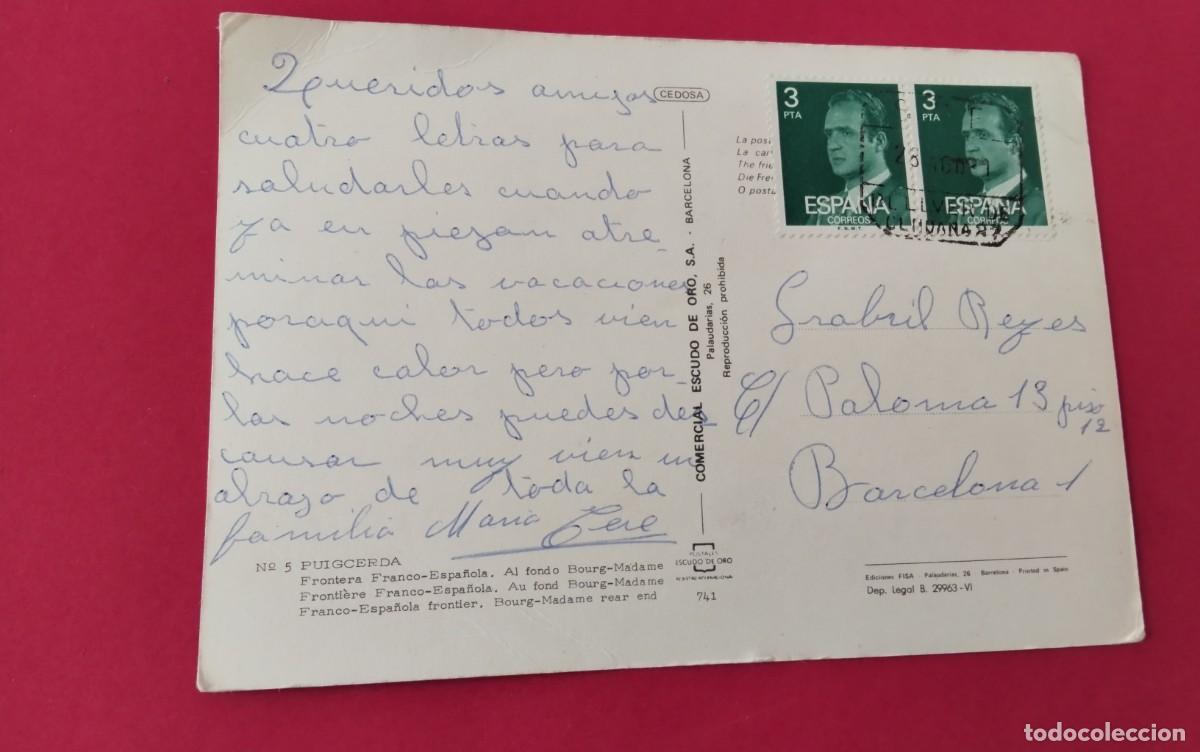 Queridos amigos
cuatro letras para
saludarles cuando
ya en piezan atre
minar las vacaciones
poraqui todos vien
hace calor pero por
las noches puedes des
causar muy vien un
abrazo de toda la
familia Maria Tere
Nº 5 PUIGCERDA
Frontera Franco-Española. Al fondo Bourg-Madame
Frontière Franco-Española. Au fond Bourg-Madame
Franco-Española frontier. Bourg-Madame rear end
741
CEDOSA
COMERCIAL ESCUDO DE ORO, S.A. - BARCELONA
Palaudarias, 26
Reproducción prohibida
POSTALES
ESCUDO DE ORO
La
La
The
Die
O
3
PTA
ESPAÑA
CORREOS
F.N.M.T.
3
PTA
ESPAÑA
CORREOS
Grabril Reyes
C/ Paloma 13 piso
12
Barcelona 1
Ediciones FISA - Palaudarias, 26 Barcelona - Printed in Spain
Dep. Legal B. 29963-VI
todocoleccion